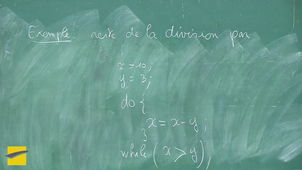 Exemple reste de la division par
x = 10;
y = 3;
do {
x = x - y;
}
while (x > y);